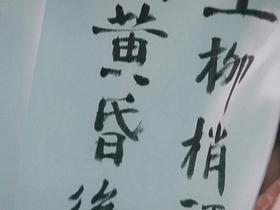 上柳梢
黄昏後